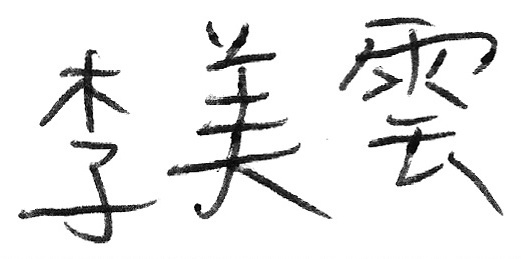 李美雲